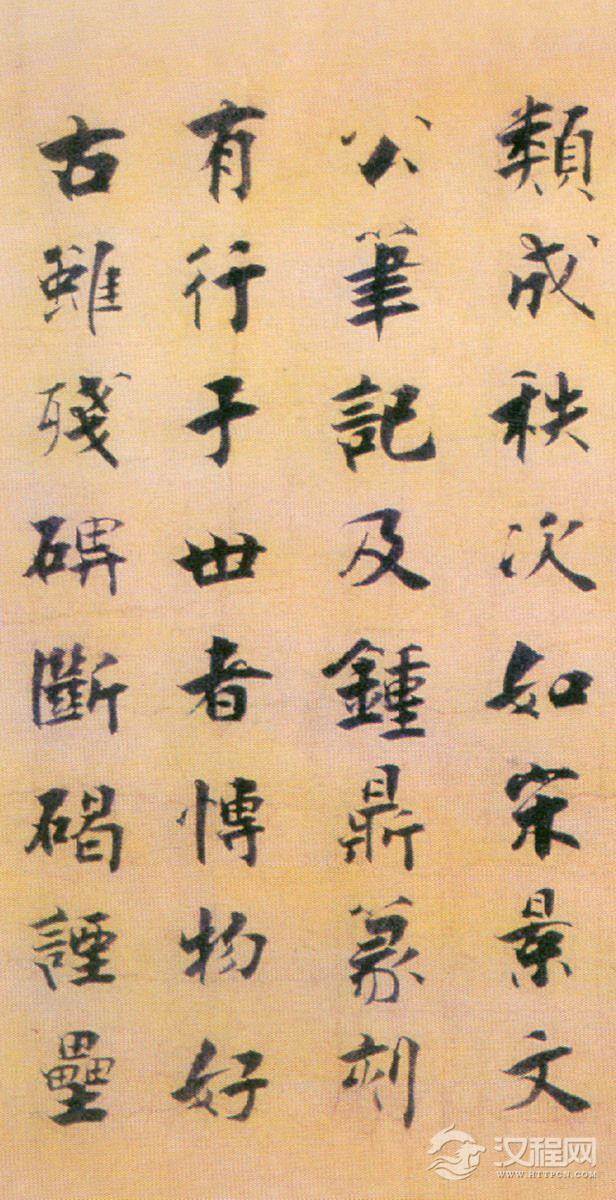 類成秩次如宋景文
公筆記及鍾鼎篆刻
有行于世者博物好
古雖殘碑斷碣諲壘
汉程网
WWW.HTTPCN.COM